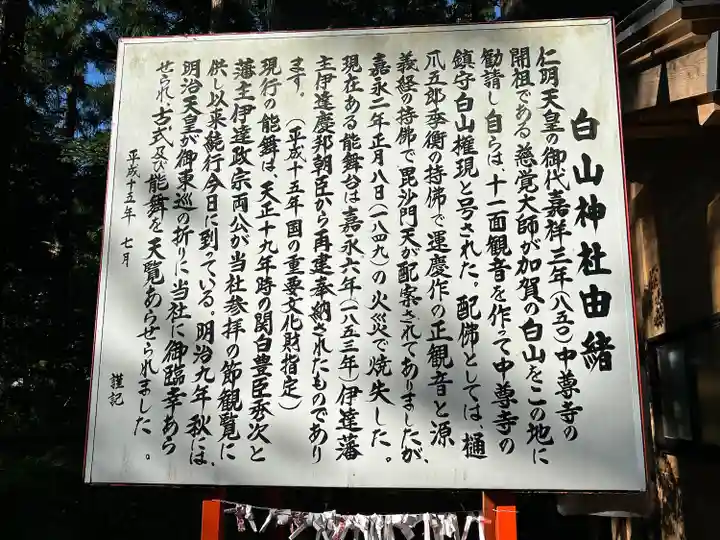 白山神社由緒
仁明天皇の御代嘉祥三年(八五〇)中尊寺の
開祖である慈覚大師が加賀の白山をこの地に
勧請し自らは、十一面観音を作って中尊寺の
鎮守白山権現と号された。配佛としては、樋
爪五郎季衡の持佛で運慶作の正観音と源
義経の持佛で毘沙門天が配案されてありましたが、
嘉永二年正月八日(一八四九)の火災で焼失した。
現在ある能舞台は嘉永六年(一八五三年)伊達藩
主伊達慶邦朝臣から再建奉納されたものであり
ます。(平成十五年国の重要文化財指定)
現行の能舞は、天正十九年時の関白豊臣秀次と
藩主伊達政宗両公が当社参拝の節観覧に
供し以来続行今日に到っている。明治九年秋には、
明治天皇が御東巡の折りに当社に御臨幸あら
せられ、古式及び能舞を天覧あらせられました。
平成十五年 七月
謹記